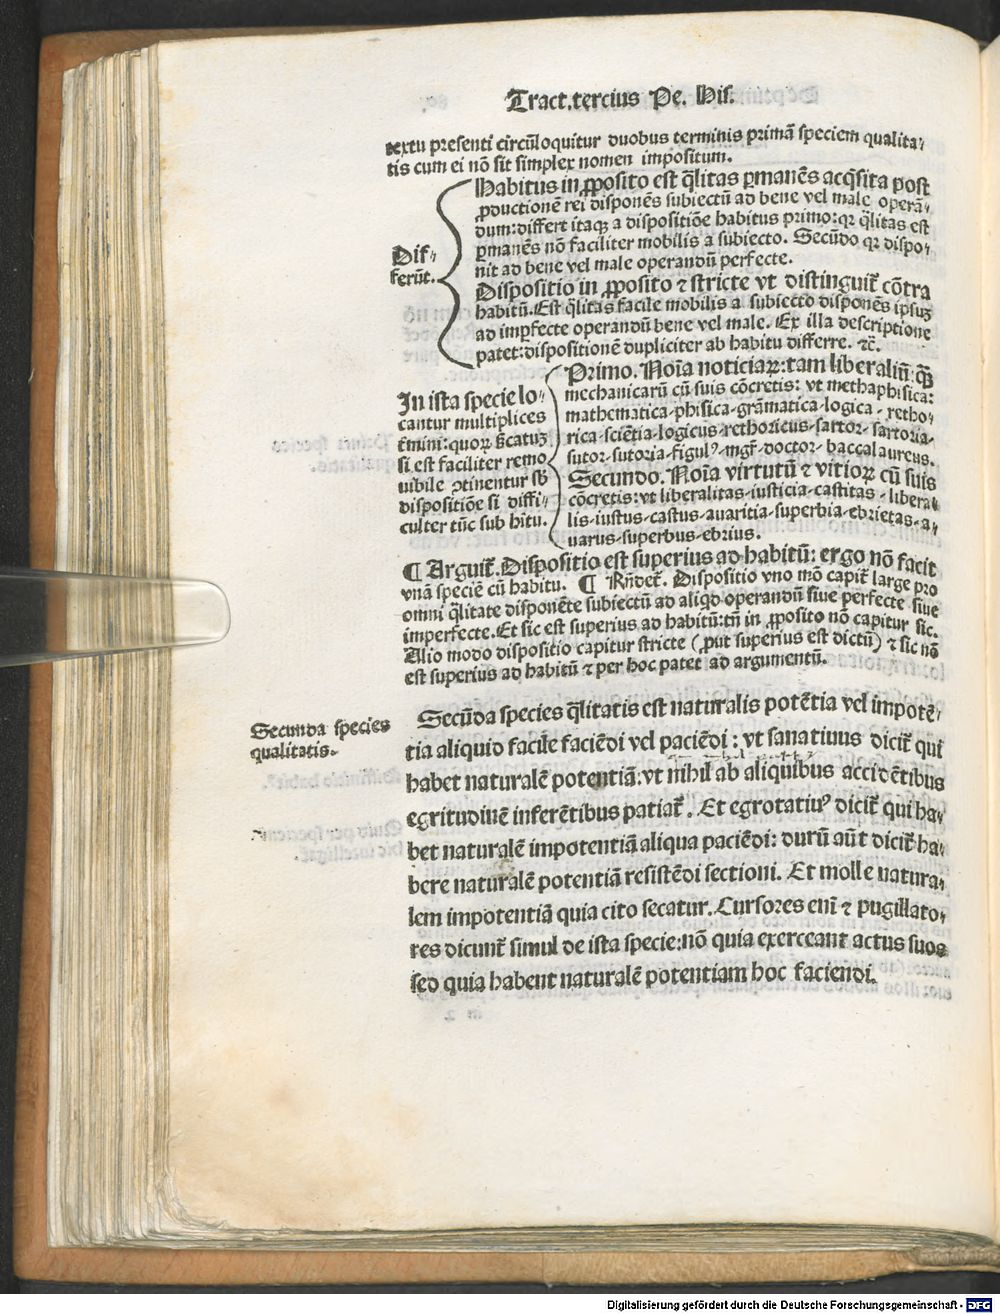 Tract.tercius Pe. His.
textu presenti circūloquitur duobus terminis primā speciem qualita⸗
tis cum ei nō sit simplex nomen impositum.
Dif⸗
ferūt.
Habitus in ꝓposito est q̄litas ꝑmanēs acq̄sita post
ꝓductionē rei disponēs subiectū ad bene vel male operā⸗
dum:differt itaqꝫ a dispositiōe habitus primo:qꝛ q̄litas est
ꝑmanēs nō faciliter mobilis a subiecto. Secūdo qꝛ dispo⸗
nit ad bene vel male operandū perfecte.
Dispositio in ꝓposito ⁊ stricte vt distinguit̄ cōtra
habitū.Est q̄litas facile mobilis a subiecto disponēs ipsuꝫ
ad imꝑfecte operandū bene vel male. Ex illa descriptione
patet:dispositionē dupliciter ab habitu differre. ⁊c̄.
In ista specie lo⸗
cantur multiplices
t̄mini:quoꝝ s̄catuꝫ
si est faciliter remo
uibile ꝯtinentur sb̄
dispositiōe si diffi⸗
culter tūc sub hitu.
Primo. Noīa noticiaꝝ:tam liberaliū:qꝫ̄
mechanicarū cū suis cōcretis: vt methaphisica:
mathematica⸗phisica⸗grāmatica⸗logica⸗retho⸗
rica⸗sciētia⸗logicus⸗rethoricus⸗sartor⸗sartoria⸗
sutor⸗sutoria⸗figulꝰ⸗mgr̄⸗doctor⸗baccalaureus.
Secundo. Noīa virtutū ⁊ vitioꝝ cū suis
cōcretis:vt liberalitas⸗iusticia⸗castitas⸗libera⸗
lis⸗iustus⸗castus⸗auaritia⸗superbia⸗ebrietas⸗a⸗
uarus⸗superbus⸗ebrius.
¶ Arguit̄.Dispositio est superius ad habitū: ergo nō facit
vnā speciē cū habitu. ¶ Rn̄det̄. Dispositio vno mō capit̄ large pro
omni q̄litate disponēte subiectū ad aliqd operandū siue perfecte siue
imperfecte.Et sic est superius ad habitū:tn̄ in ꝓposito nō capitur sic.
Alio modo dispositio capitur stricte (ꝓut superius est dictū) ⁊ sic nō
est superius ad habitū ⁊ per hoc patet ad argumentū.
Secunda species
qualitatis.
Secūda species q̄litatis est naturalis potētia vel impotē⸗
tia aliquid facile faciēdi vel paciēdi: vt sanatiuus dicit̄ qui
habet naturalē potentiā:vt nihil ab aliquibus accidētibus
egritudinē inferētibus patiat̄. Et egrotatiuꝰ dicit̄ qui ha⸗
bet naturalē impotentiā aliqua paciēdi: durū aūt dicit̄ ha⸗
bere naturalē potentiā resistēdi sectioni. Et molle natura⸗
lem impotentiā quia cito secatur.Cursores eni ⁊ pugillato⸗
res dicunt̄ simul de ista specie:nō quia exerceant actus suos
sed quia habent naturalē potentiam hoc faciendi.
Digitalisierung gefördert durch die Deutsche Forschungsgemeinschaft - DFG